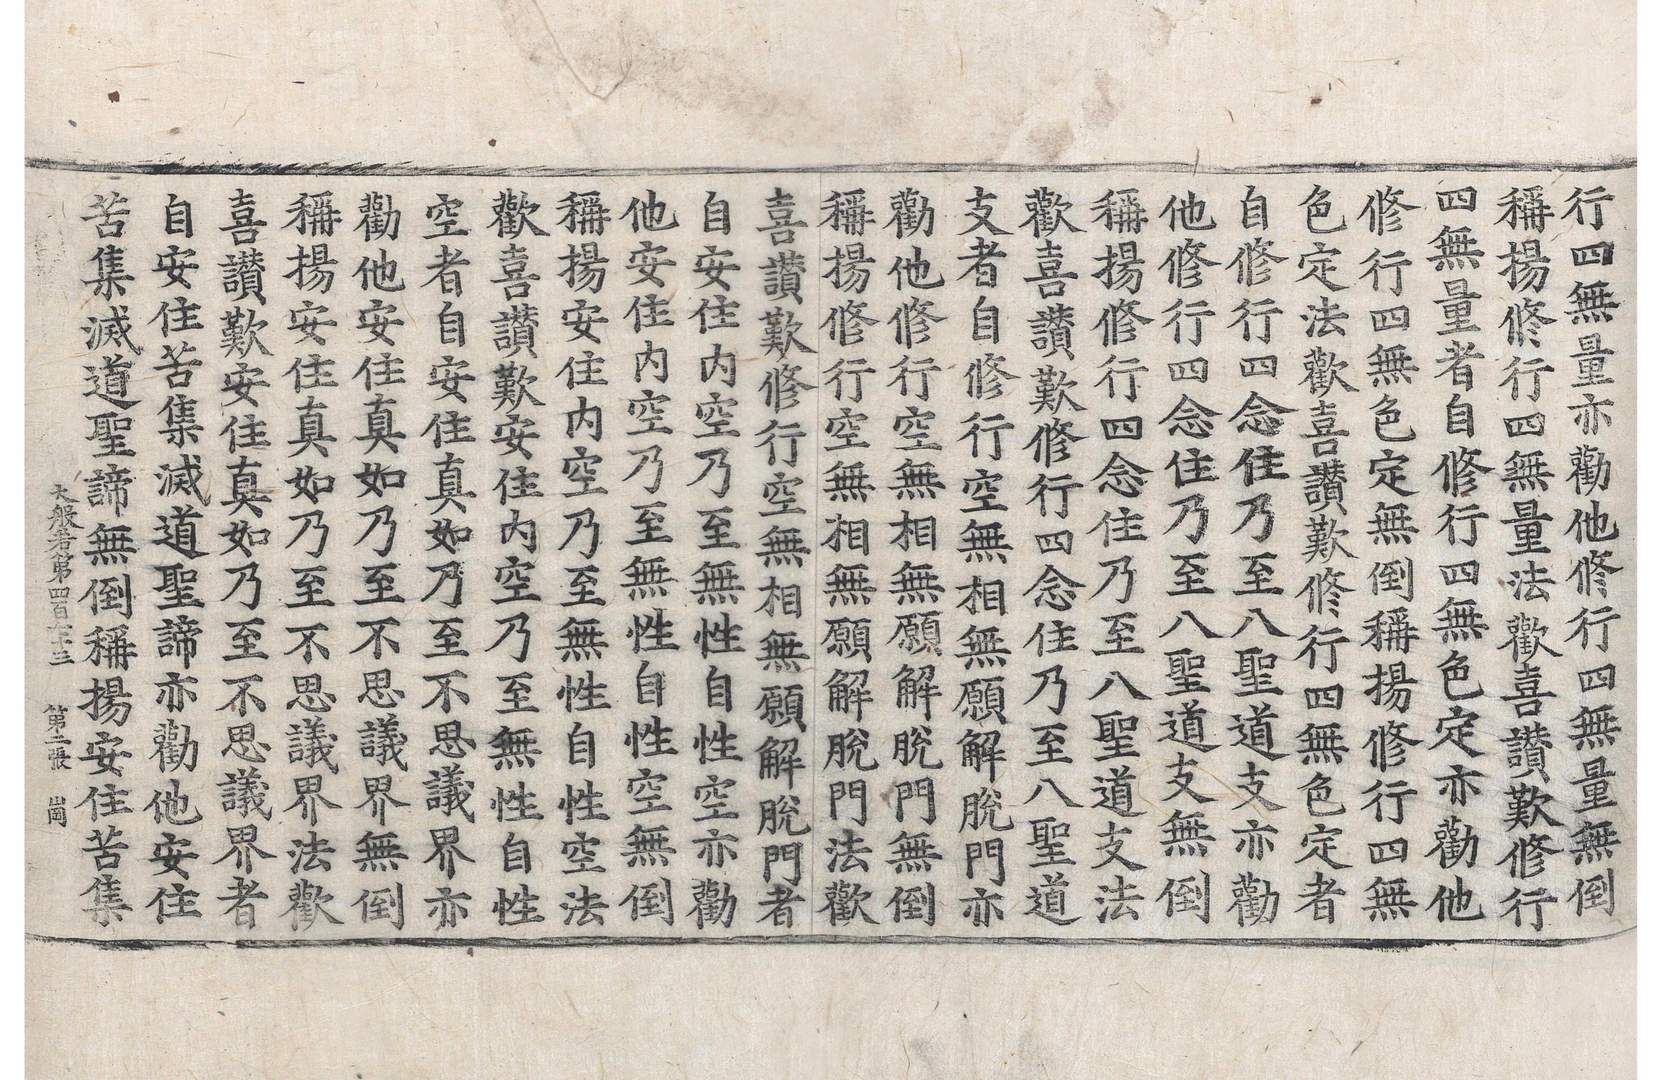 行四無量亦勸他修行四無量無倒
稱揚修行四無量法歡喜讚歎修行
四無量者自修行四無色定亦勸他
修行四無色定無倒稱揚修行四無
色定法歡喜讚歎修行四無色定者
自修行四念住乃至八聖道支亦勸
他修行四念住乃至八聖道支無倒
稱揚修行四念住乃至八聖道支法
歡喜讚歎修行四念住乃至八聖道
支者自修行空無相無願解脫門亦
勸他修行空無相無願解脫門無倒
稱揚修行空無相無願解脫門法歡
喜讚歎修行空無相無願解脫門者
自安住內空乃至無性自性空亦勸
他安住內空乃至無性自性空無倒
稱揚安住內空乃至無性自性空法
歡喜讚歎安住內空乃至無性自性
空者自安住真如乃至不思議界亦
勸他安住真如乃至不思議界無倒
稱揚安住真如乃至不思議界法歡
喜讚歎安住真如乃至不思議界者
自安住苦集滅道聖諦亦勸他安住
苦集滅道聖諦無倒稱揚安住苦集
大般若第四百 三 第二張 崗